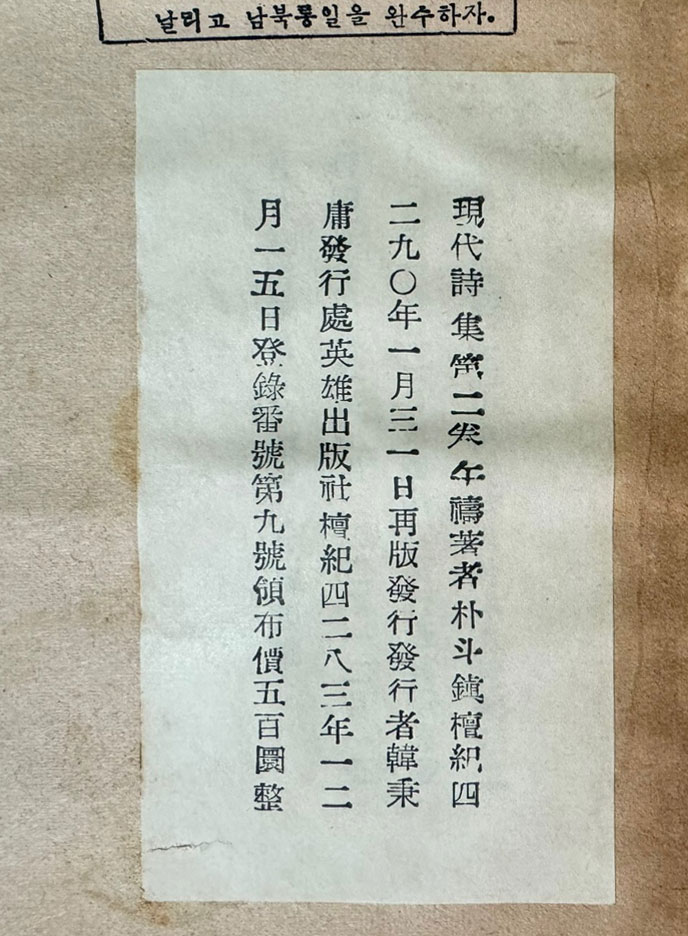 날리고 남북통일을 완수하자.
現代詩集第二午禱著者朴斗鎭檀紀四
二九〇年一月三一日再版發行發行者韓秉
庸發行處英雄出版社檀紀四二八三年一二
月一五日登錄番號第九號領布價五百圜整